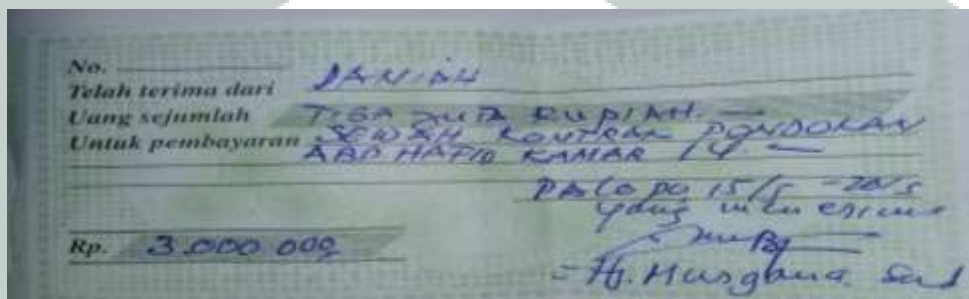 No.
Telah terima dari DANIAH
Uang sejumlah TIGA JUTA RUPIAH. —
Untuk pembayaran SEWAH KONTRAK PONDOKAN
ABD HAFID KAMAR 14 —
PALOPO 15/5 - 2015
yang menerima
Rp. 3.000 000
Hj. Husgana